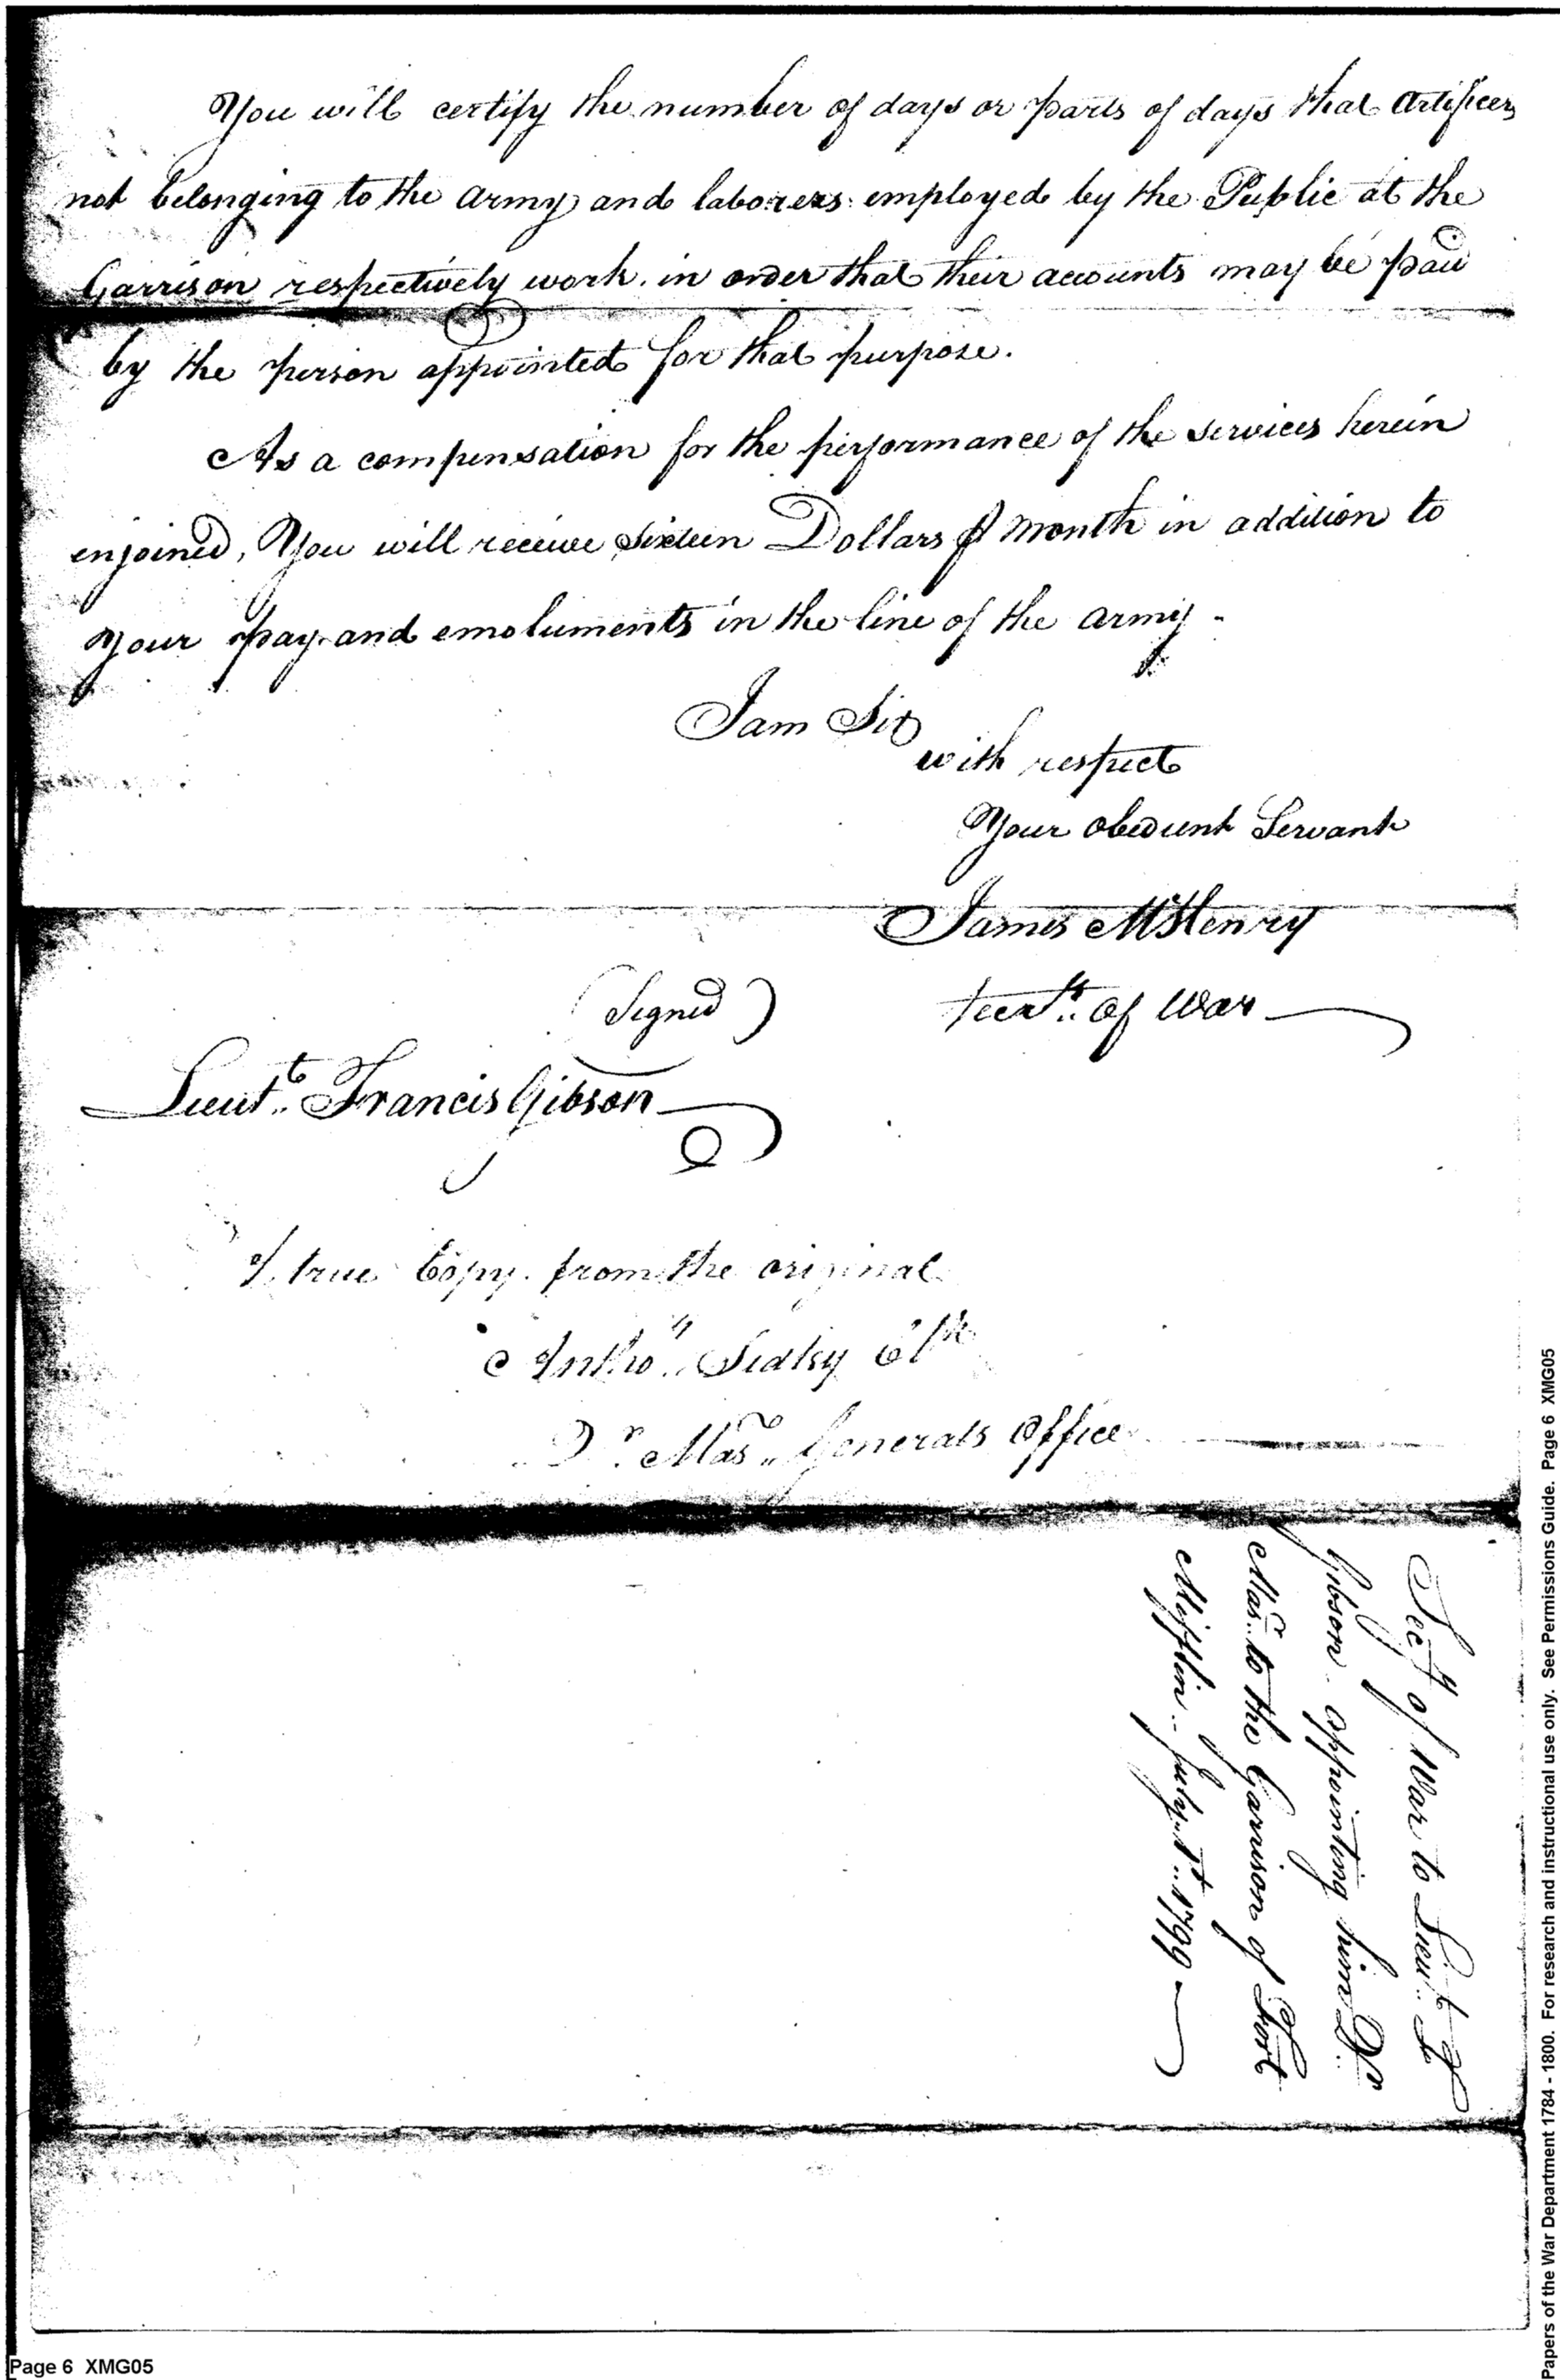 You will certify the number of days or parts of days that Artificers
not belonging to the army and laborers employed by the Public at the
Garrison respectively work. in order that their accounts may be paid
by the person appointed for that purpose.
As a compensation for the performance of the services herein
enjoined, You will receive sixteen Dollars ⅌ month in addition to
your pay and emoluments in the line of the army -
I am Sir
with respect
Your obedient Servant
James McHenry
(Signed) Secry. of War
Lieut. Francis Gibson
A true Copy from the original
Anthoy. Clk
Qr. Masr. Generals Office
Secy of War to Lieut. F
Gibson appointing him Qr.
Masr. to the Garrison of Fort
Mifflin - July 1799 -
Page 6 XMG05
Papers of the War Department 1784 - 1800. For research and instructional use only. See Permissions Guide. Page 6 XMG05